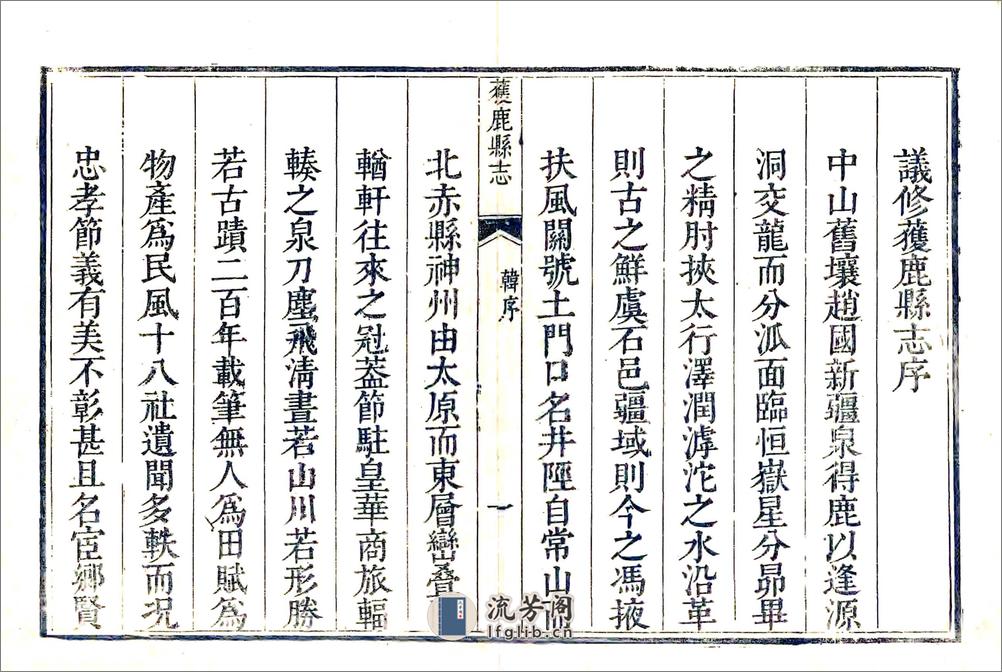 議修獲鹿縣志序
中山舊壤趙國新疆泉得鹿以逢源
洞交龍而分泒面臨恒嶽星分昴畢
之精肘挾太行澤潤滹沱之水沿革
則古之鮮虞石邑疆域則今之馮掖
扶風關號土門口名井陘自常山
獲鹿縣志
韓序
一
北赤縣神州由太原而東層巒疊
輶軒往來之冠葢節駐皇華商旅輻
輳之泉刀塵飛淸晝若山川若形勝
若古蹟二百年載筆無人爲田賦爲
物產爲民風十八社遺聞多軼而况
忠孝節義有美不彰甚且名宦鄕賢
流芳阁
lfglib.cn